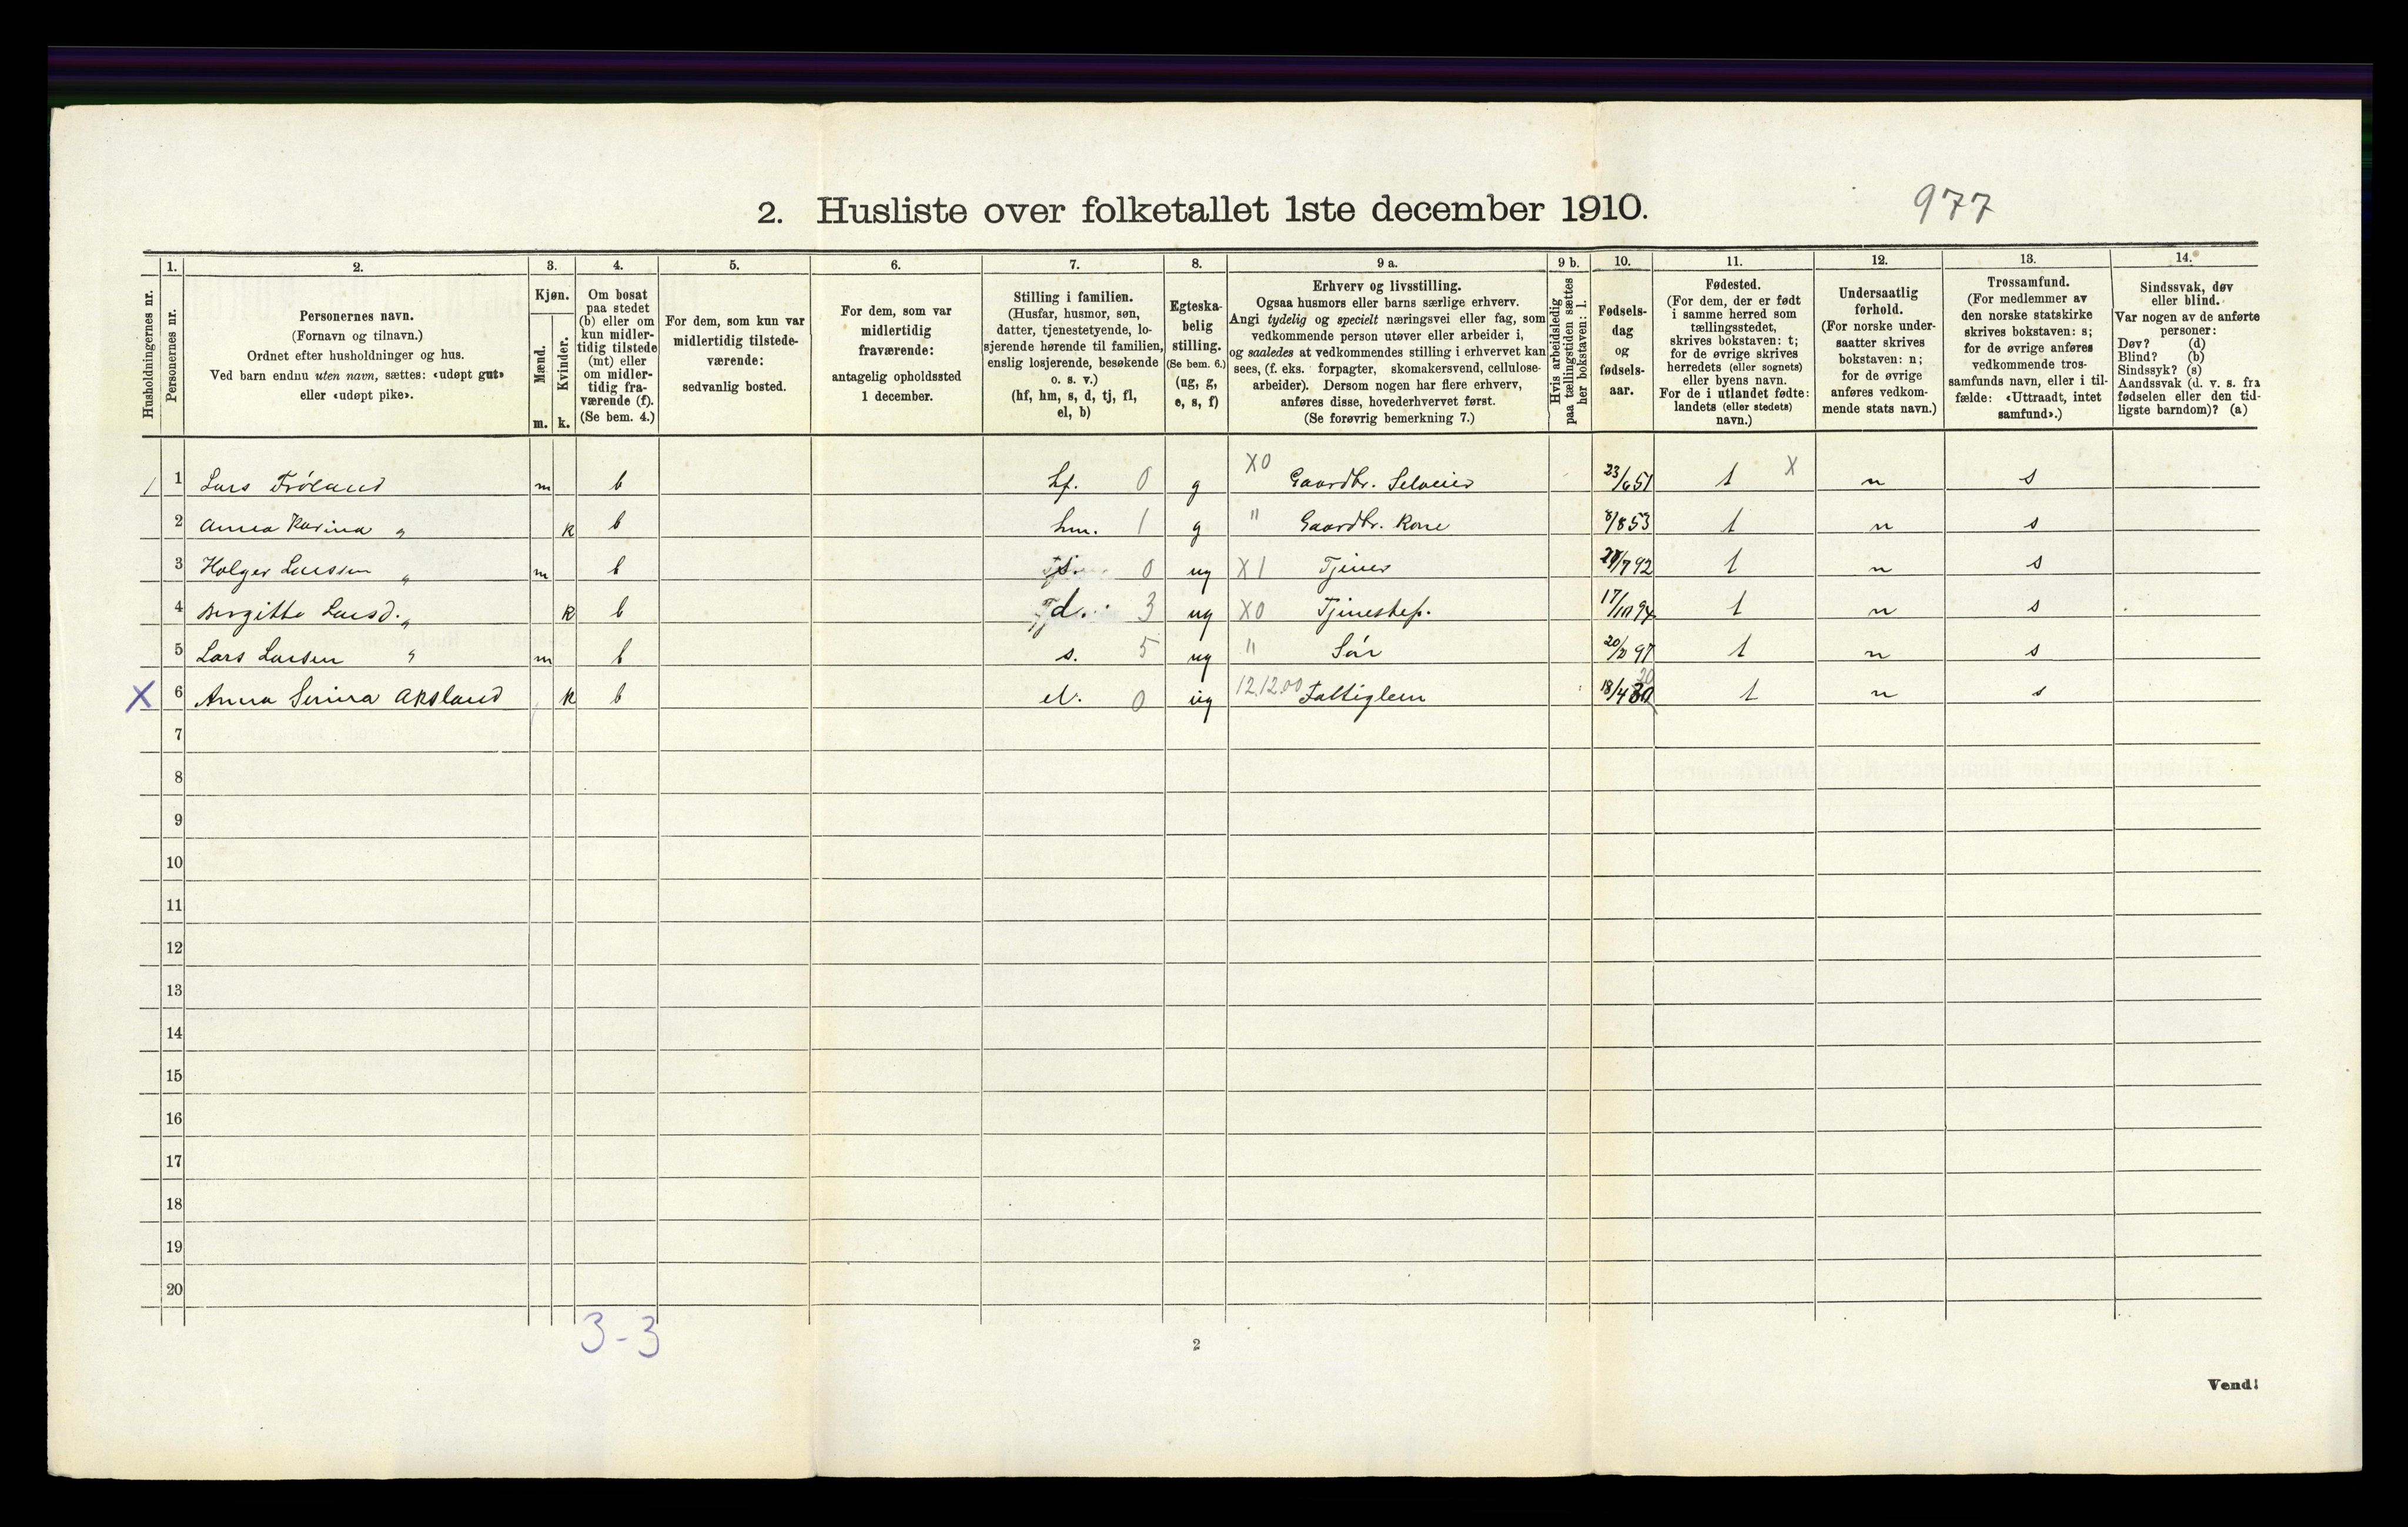 2. Husliste over folketallet 1ste december 1910.
977
Husholdningernes nr.
1.
Personernes nr.
2.
Personernes navn.
(Fornavn og tilnavn.)
Ordnet efter husholdninger og hus.
Ved barn endnu uten navn, sættes: «udøpt gut»
eller «udøpt pike».
3.
Kjøn.
Mænd.
Kvinder.
m.
k.
4.
Om bosat
paa stedet
(b) eller om
kun midler-
tidig tilstede
(mt) eller
om midler-
tidig fra-
værende (f).
(Se bem. 4.)
5.
For dem, som kun var
midlertidig tilstede-
værende:
sedvanlig bosted.
6.
For dem, som var
midlertidig
fraværende:
antagelig opholdssted
1 december.
7.
Stilling i familien.
(Husfar, husmor, søn,
datter, tjenestetyende, lo-
sjerende hørende til familien,
enslig losjerende, besøkende
o. s. v.)
(hf, hm, s, d, tj, fl,
el, b)
8.
Egteska-
belig
stilling.
(Se bem. 6.)
(ug, g,
e, s, f)
9 a.
Erhverv og livsstilling.
Ogsaa husmors eller barns særlige erhverv.
Angi tydelig og specielt næringsvei eller fag, som
vedkommende person utøver eller arbeider i,
og saaledes at vedkommendes stilling i erhvervet kan
sees, (f. eks. forpagter, skomakersvend, cellulose-
arbeider). Dersom nogen har flere erhverv,
anføres disse, hovederhvervet først.
(Se forøvrig bemerkning 7.)
9 b.
Hvis arbeidsledig
paa tællingstiden sættes
her bokstaven: l.
10.
Fødsels-
dag
og
fødsels-
aar.
11.
Fødested.
(For dem, der er født
i samme herred som
tællingsstedet,
skrives bokstaven: t;
for de øvrige skrives
herredets (eller sognets)
eller byens navn.
For de i utlandet fødte:
landets (eller stedets)
navn.)
12.
Undersaatlig
forhold.
(For norske under-
saatter skrives
bokstaven: n;
for de øvrige
anføres vedkom-
mende stats navn.)
13.
Trossamfund.
(For medlemmer av
den norske statskirke
skrives bokstaven: s;
for de øvrige anføres
vedkommende tros-
samfunds navn, eller i til-
fælde: «Uttraadt, intet
samfund».)
14.
Sindssvak, døv
eller blind.
Var nogen av de anførte
personer:
Døv? (d)
Blind? (b)
Sindssyk? (s)
Aandssvak (d. v. s. fra
fødselen eller den tid-
ligste barndom)? (a)
1 1 Lars Frøland m b hf. 0 g X0 Gaardbr. Selveier 23/6 51 t X n s
2 Anna Karina " k b hm. 1 g " Gaardbr. Kone 8/8 53 t n s
3 Holger Larssen " m b s. 0 ug X1 Tjener /7 92 t n s
4 Birgitte Larsd. " k b d. 3 ug X0 Tjenestep. 17/10 94 t n s
5 Lars Larsen " m b s. 5 ug " Søn 97 t n s
X 6 Anna Serina Aksland k b el. 0 ug 12.12.00 Fattiglem 18/4 20 t n s
7
8
9
10
11
12
13
14
15
16
17
18
19
20
3-3
2
Vend!